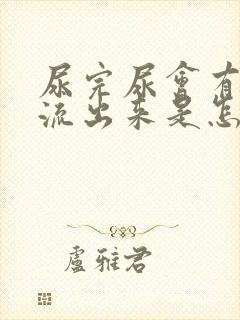 尿完尿會有
流出来是怎
盧雅君